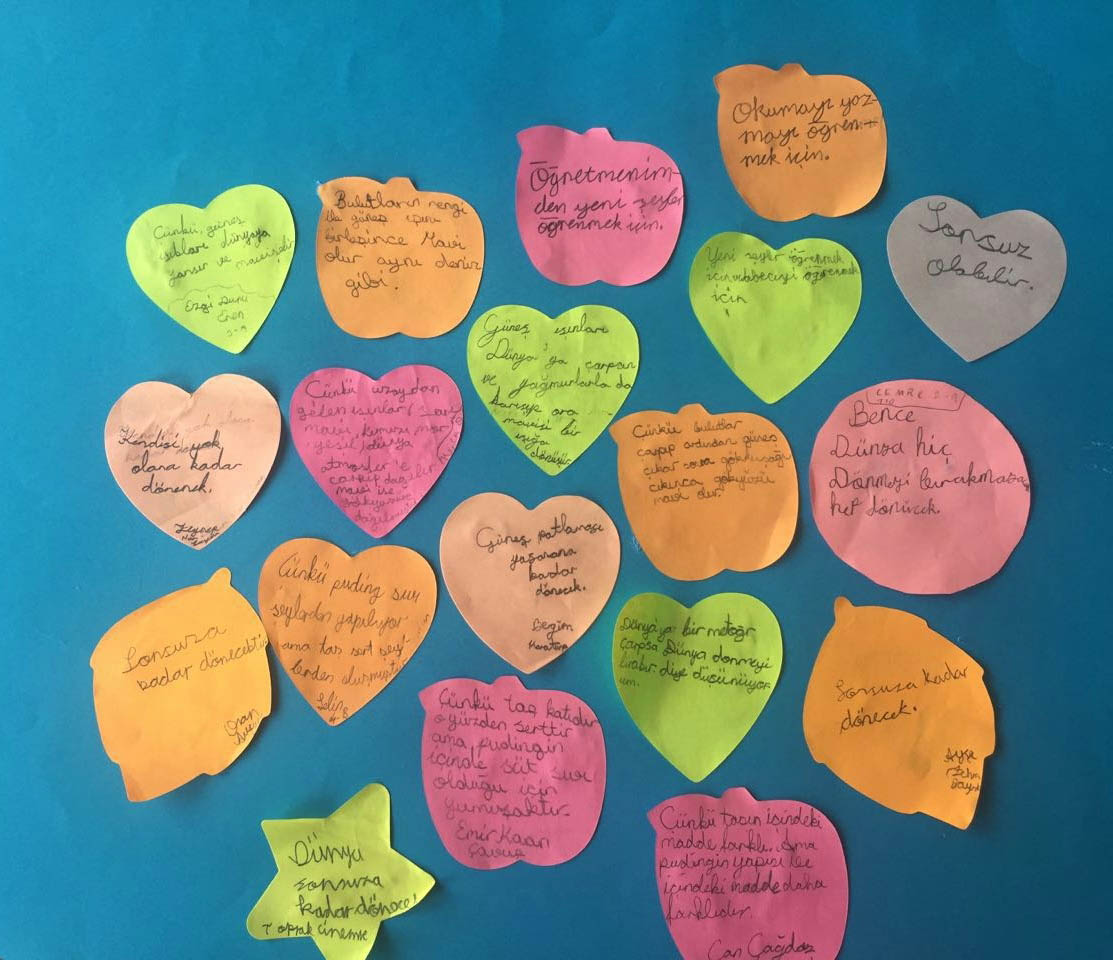 Okumayı yaz-
mayı öğren-
mek için.
Öğretmenim-
den yeni şeyler
öğrenmek için.
Çünkü, güneş
ışıkları dünyaya
yansır ve mavisidir
Ezgi Duru
Eren
Bulutların rengi
ile güneş ışını
birleşince Mavi
olur aynı deniz
gibi.
Yeni şeyler öğrenmek
için
öğrenmek
için
Sonsuz
olabilir.
Güneş ışınları
Dünya'ya çarpsın
ve yağmurlarla da
karışıp ara
mavisi bir
ışığa
dönüşür
Kendisi yok
olana kadar
dönecek.
Zeynep
Çünkü uzaydan
gelen ışınlar
mavi, kırmızı mor
yeşil, dünya
atmosfer'e
çarpıp
mavi ise
gökyüzüne
Çünkü bulutlar
çarpıp ardından güneş
çıkar sonra gökkuşağı
çıkınca gökyüzü
mavi olur.
CEMRE
Bence
Dünya hiç
Dönmeyi bırakmasa
hep dönücek.
Güneş patlaması
yaşanana
kadar
dönecek.
Begüm
Çünkü puding sıvı
şeylerden yapılıyor
ama taş sert şey-
lerden oluşmuştur
Selin
Sonsuza
kadar dönecektir
Dünyaya bir metoğr
çarpsa Dünya dönmeyi
bırakır diye düşünüyor-
um.
Sonsuza kadar
dönecek.
Ayşe
Çünkü taş katıdır
o yüzden serttir
ama pudingin
içinde süt sıvı
olduğu için
yumuşaktır.
Emir Kaan
Çavuş
Dünya
sonsuza
kadar dönece!
Toprak
Çünkü taşın içindeki
madde farklı. Ama
pudingin yapısı ve
içindeki madde daha
farklıdır.
Can Çağdaş